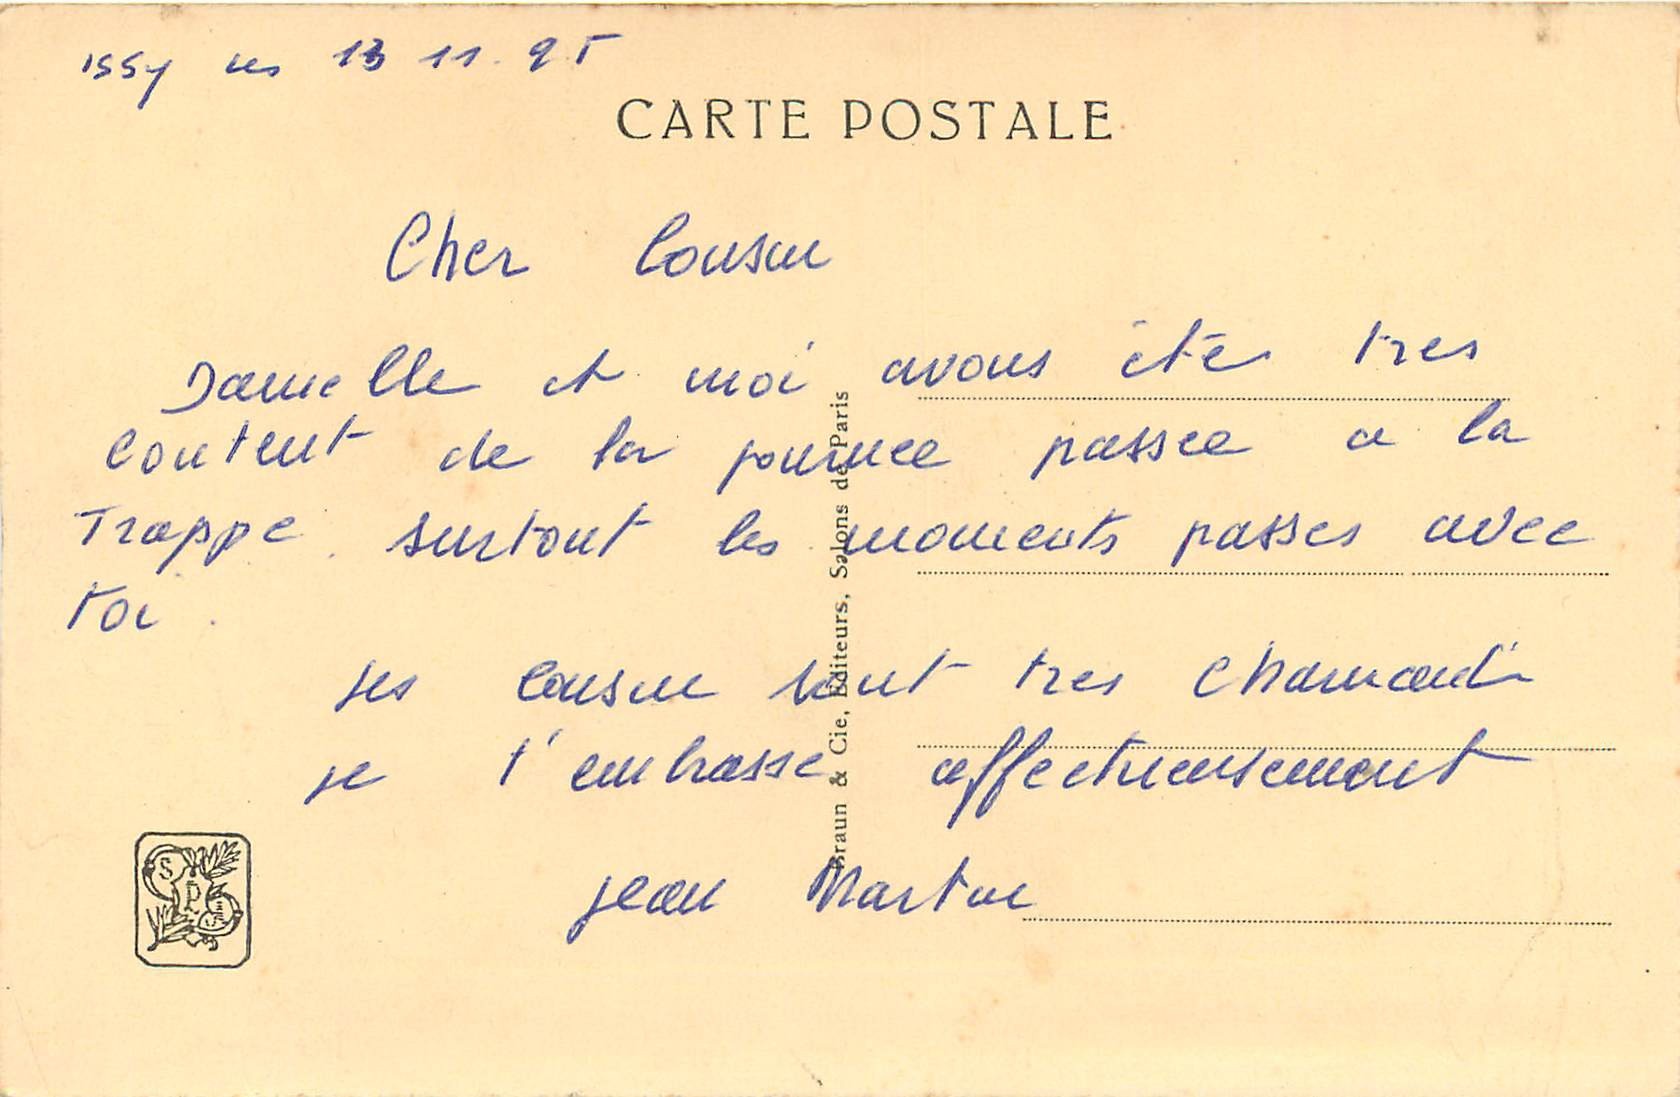 Issy les 13 11. 95
CARTE POSTALE
Cher Cousin
Danielle et moi avons été tres
content de la journee passee a la
Trappe. surtout les moments passes avec
toi.
tes cousin sont tres charmant
je t'embrasse affectueusement
jean Martin
Braun & Cie, Editeurs, Salons de Paris
SPS